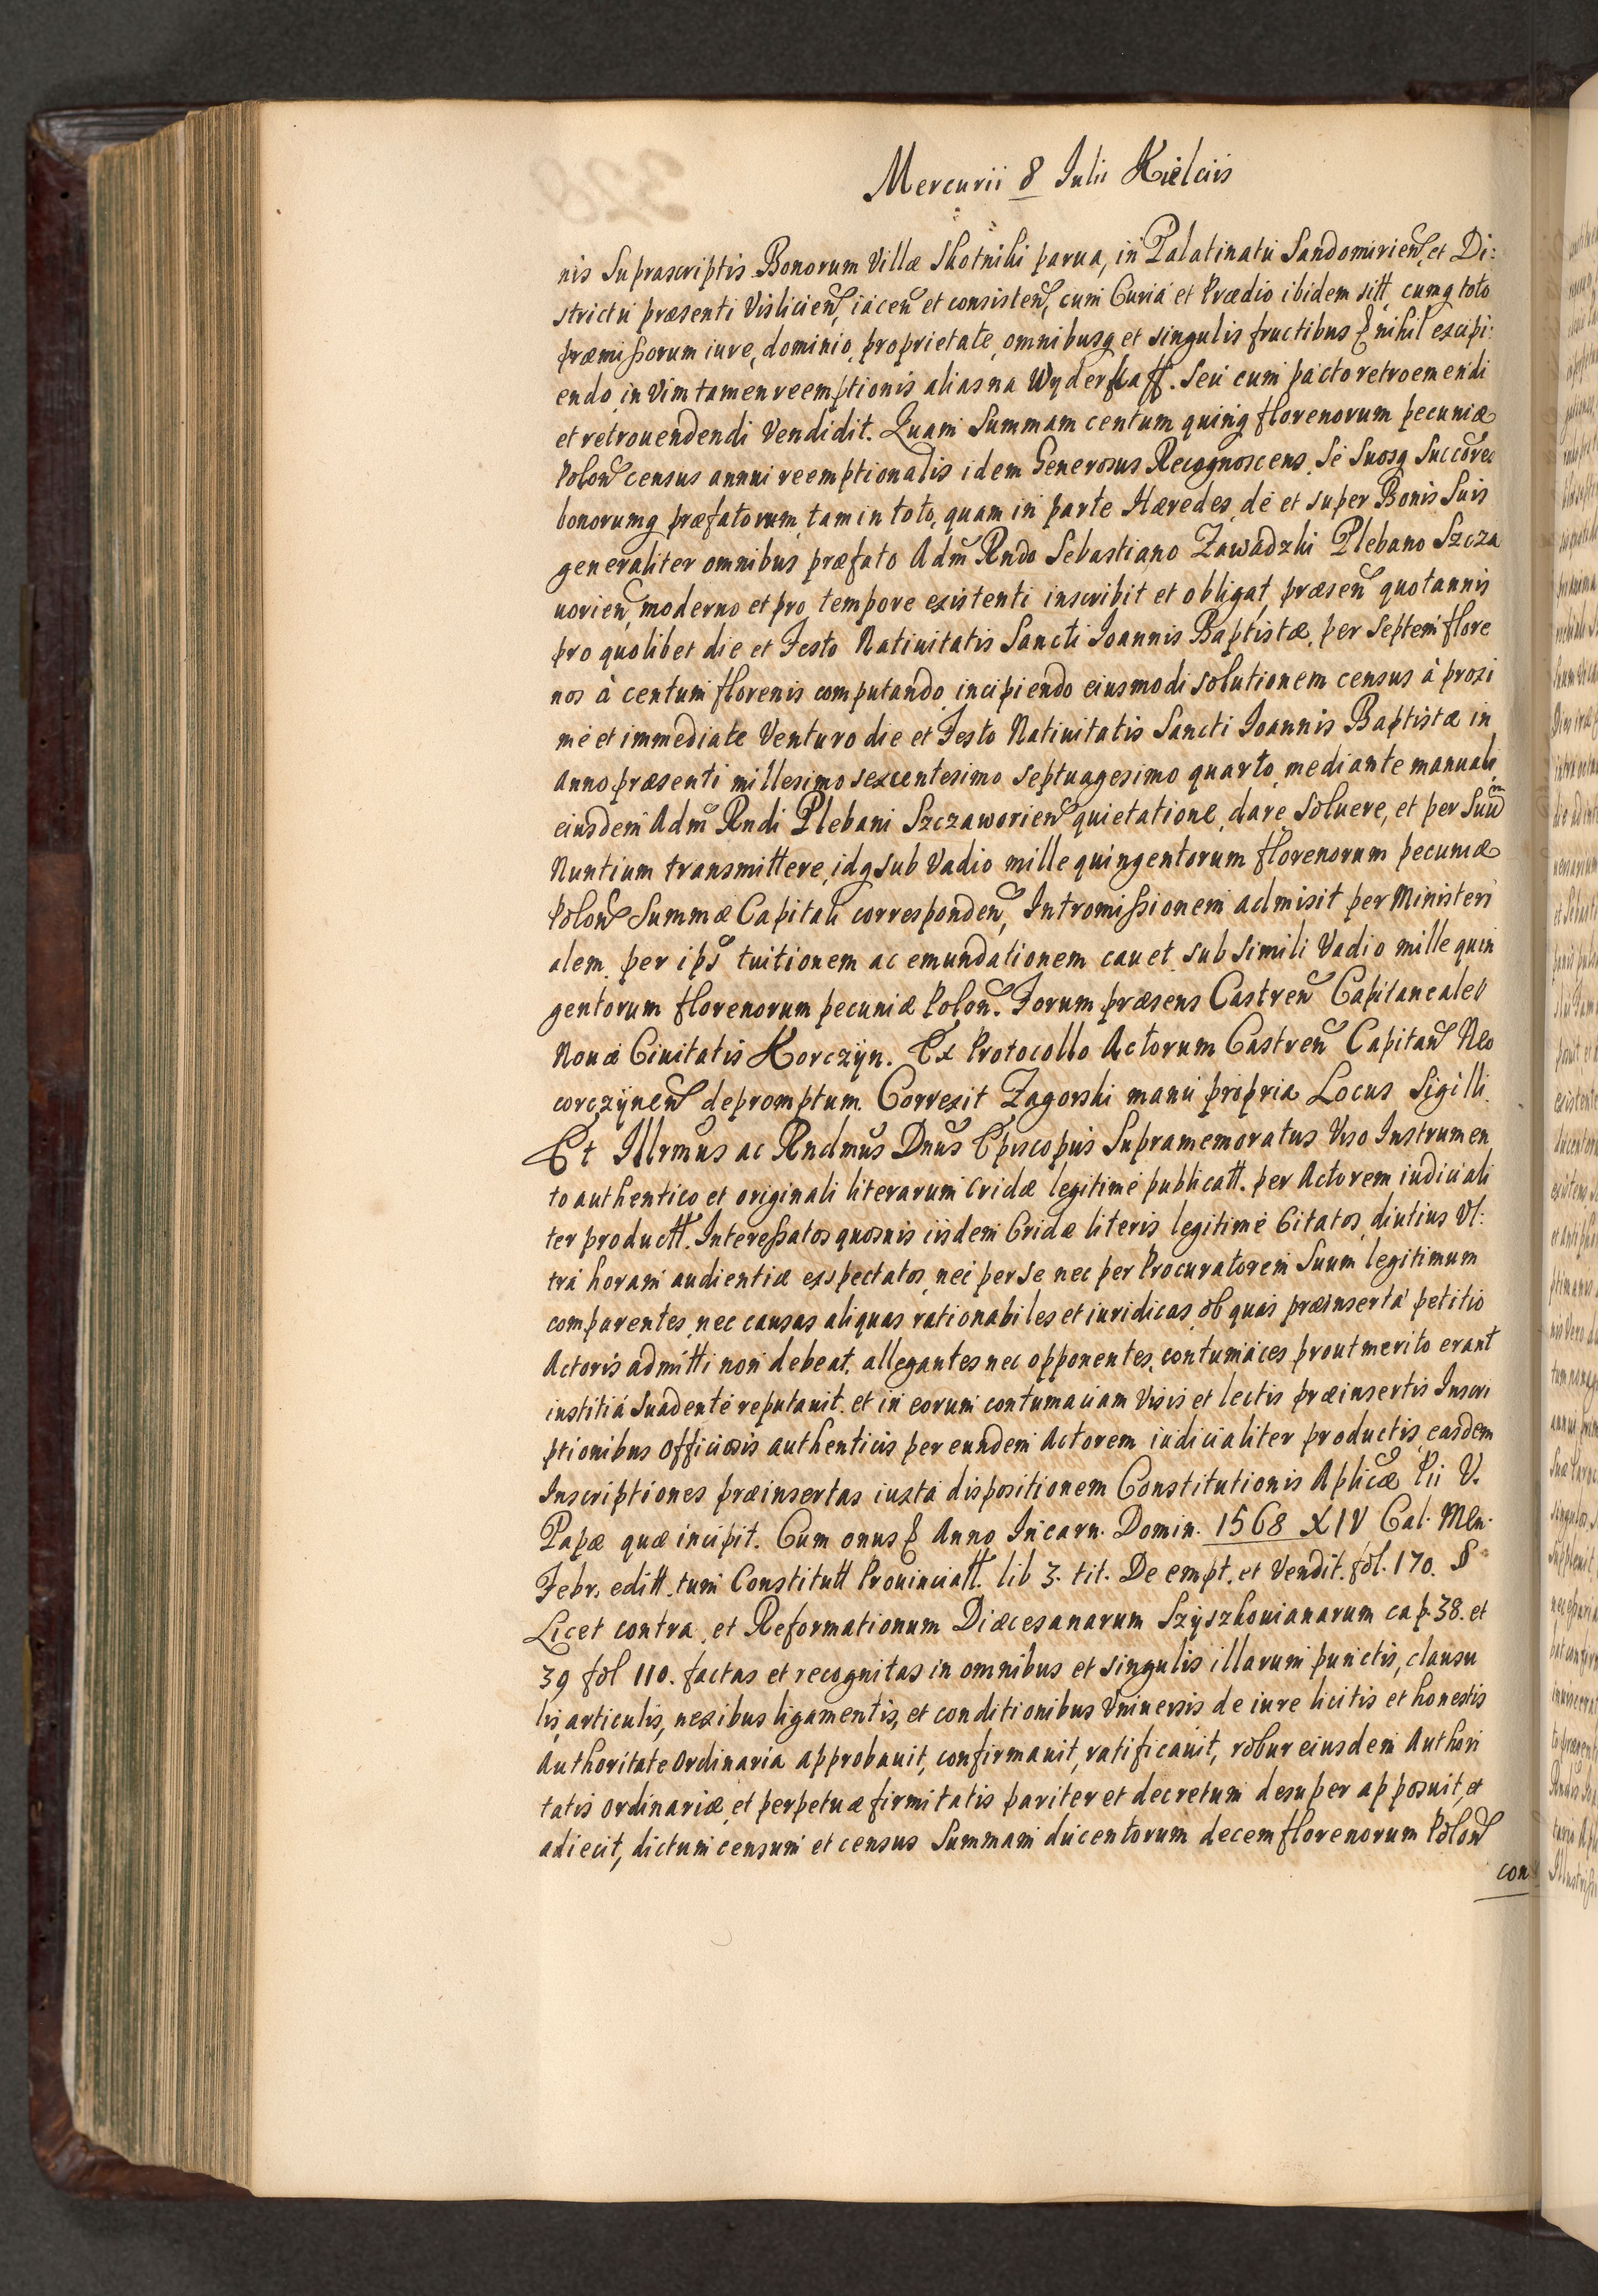 Mercurii 8 Iulii Kielciis
nis suprascriptis Bonorum Villæ Skotniki parua, in Palatinatu Sandomirien, et Di:
strictu præsenti Vislicien, iacen et consisten, cum Curia et Prædio ibidem sitt, cumq toto
præmissorum iure, dominio, proprietate, omnibusq et singulis fructibus & nihil excipi:
endo, in Vim tamen reemptionis alias na Wyderkaff. Seu cum pacto retroemendi
et retrouendendi Vendidit. Quam Summam centum quinq florenorum pecuniæ
Polon census annui reemptionalis idem Generosus Recognoscens, se suosq succores
bonorumq præfatorum, tam in toto, quam in parte Hæredes, de et super Bonis Suis
generaliter omnibus, præfato Adm Rndo Sebastiano Zawadzki Plebano Szcza
uorien, moderno et pro tempore existenti inscribit et obligat, præsen quotannis
pro quolibet die et Festo Natiuitatis Sancti Ioannis Baptistæ, per septem flore
nos à centum florenis computando, incipiendo eiusmodi solutionem census à proxi
me et immediate Venturo die et Festo Natiuitatis Sancti Ioannis Baptistæ in
Anno præsenti millesimo sexcentesimo septuagesimo quarto, mediante manuali
eiusdem Adm Rndi Plebani Szczaworien quietatione, dare, soluere, et per suum
Nuntium transmittere, idq sub Vadio mille quingentorum florenorum pecuniæ
Polon Summæ Capitali corresponden, Intromissionem admisit per Ministeri
alem, per ips tuitionem ac emundationem cauet, sub simili Vadio mille quin
gentorum florenorum pecuniæ Polon. Forum præsens Castren Capitaneale
Nouæ Ciuitatis Korczÿn. Ex Protocollo Actorum Castren Capitan Neo
corczÿnen depromptum. Correxit Zagorski manu propria Locus Sigilli.
Et Illrmus ac Rndmus Dnus Episcopus Supramemoratus Viso Instrumen
to authentico et originali literarum Cridæ legitime publicatt. per Actorem iudiciali
ter productt. Interessatos quosuis iisdem Cridæ literis legitime Citatos, diutius Vl:
tra horam audientiæ exspectatos, nec per se nec per Procuratorem Suum legitimum
comparentes, nec causas aliquas rationabiles et iuridicas, ob quas præinserta petitio
Actoris admitti non debeat, allegantes nec opponentes, contumaces prout merito erant
iustitiá Suadente reputauit. et in eorum contumaciam Visis et lectis præinsertis Inscri
ptionibus Officiosis authenticis per eundem Actorem iudicialiter productis, easdem
Inscriptiones præinsertas iuxta dispositionem Constitutionis Aplicæ Pii V.
Papæ quæ incipit. Cum onus & Anno Incarn. Domin. 1568 XIV Cal. Men.
Febr, editt. tum Constitutt Prouinciatt. lib 3. tit. De empt. et Vendit. fol. 170. §
Licet contra, et Reformationum Diæcesanarum Szÿszkouianarum cap. 38. et
39 fol 110. factas et recognitas in omnibus et singulis illarum punctis, clausu
lis, articulis, nexibus ligamentis, et conditionibus Vniuersis de iure licitis et honestis
Authoritate Ordinaria approbauit, confirmauit, ratificauit, robur eiusdem Authori
tatis ordinariæ et perpetuæ firmitatis pariter et decretum desuper apposuit, et
adiecit, dictum censum et census Summam ducentorum decem florenorum Polon
con